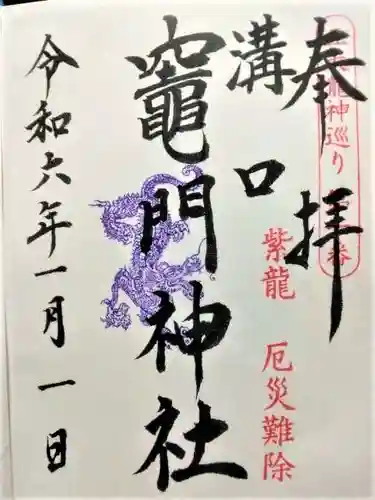 奉拝
龍神巡り
番
紫龍 厄災難除
溝口
竈門神社
令和六年一月一日